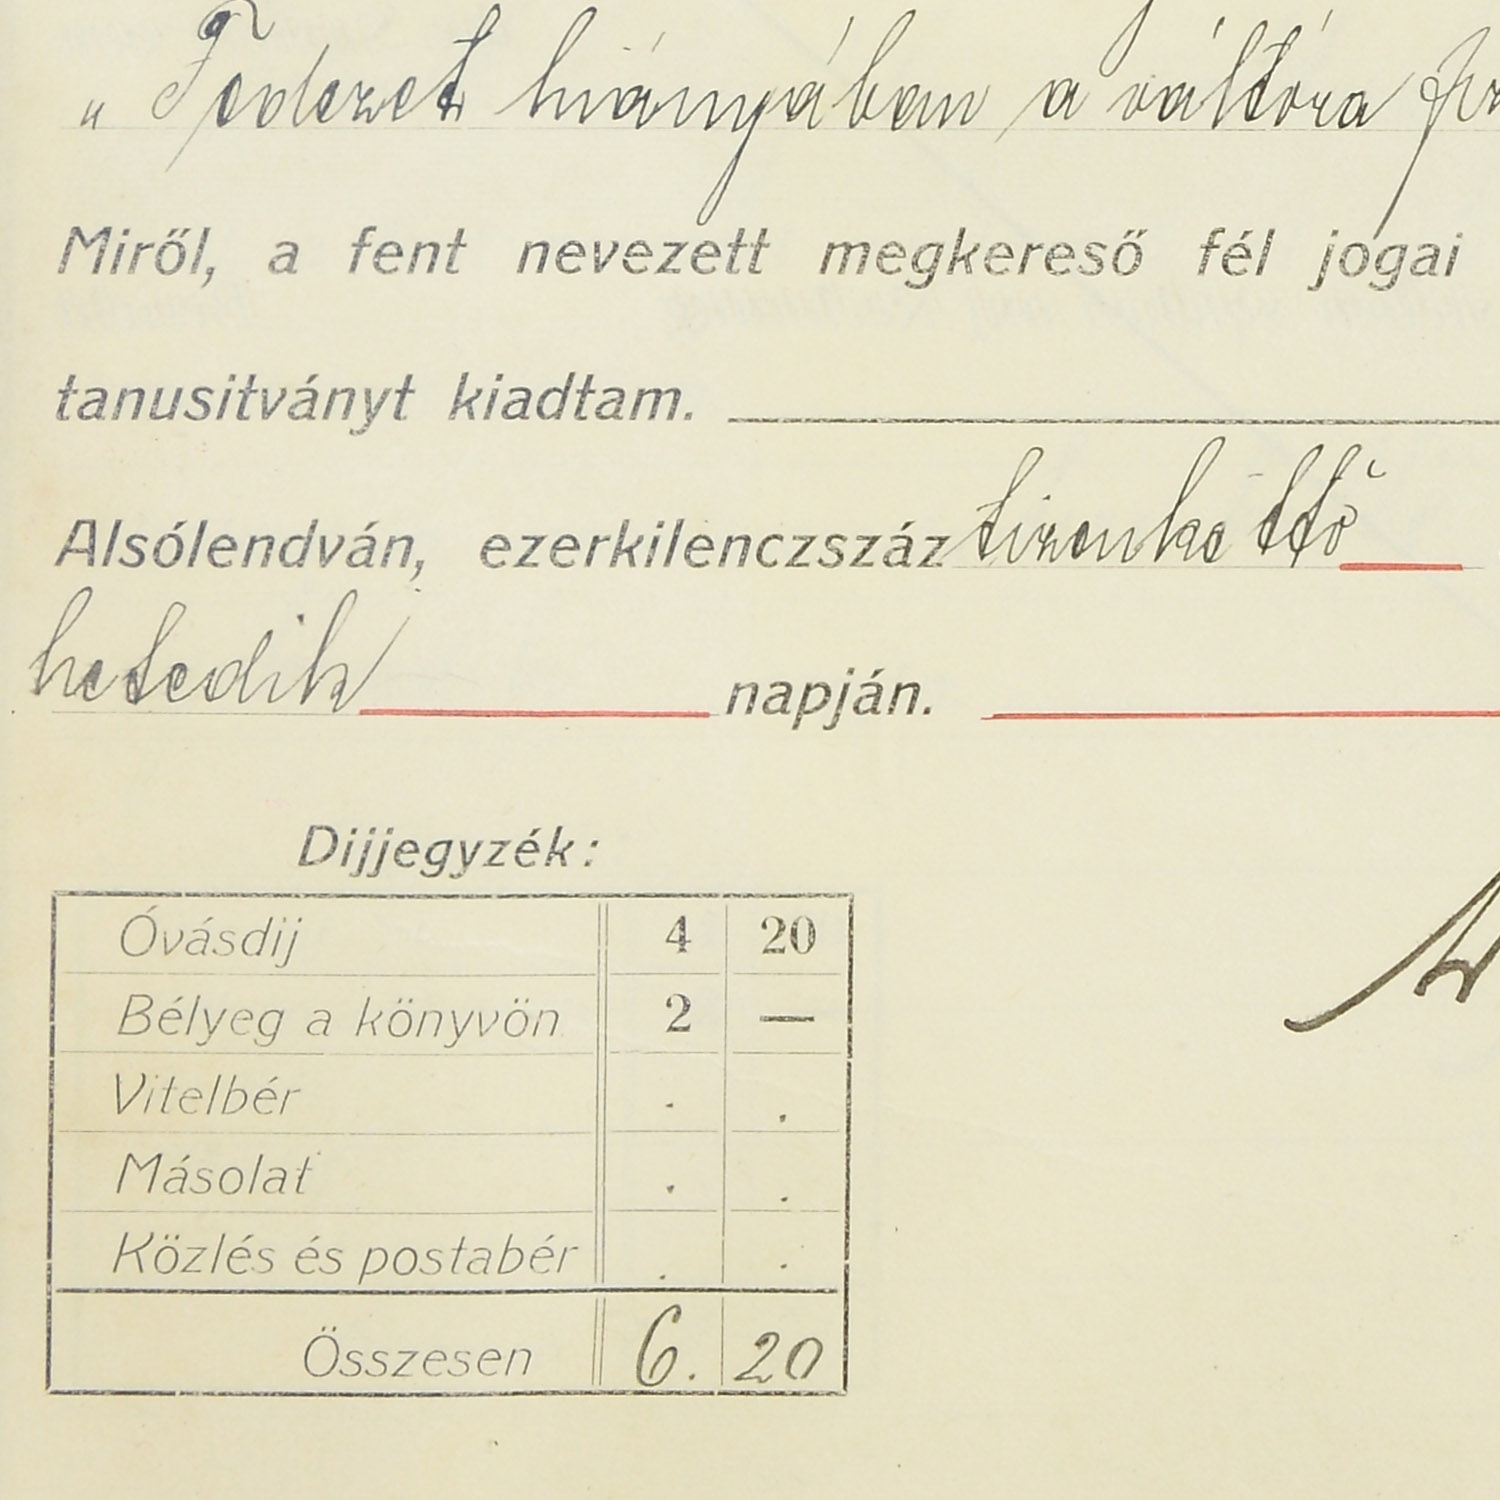 „ Fedezet hiányában a váltóra
Miről, a fent nevezett megkereső fél jogai
tanusitványt kiadtam.
Alsólendván, ezerkilenczszáz tizenkettő
hetedik napján.
Dijjegyzék:
Óvásdij 4 20
Bélyeg a könyvön 2 —
Vitelbér . .
Másolat . .
Közlés és postabér . .
Összesen 6. 20